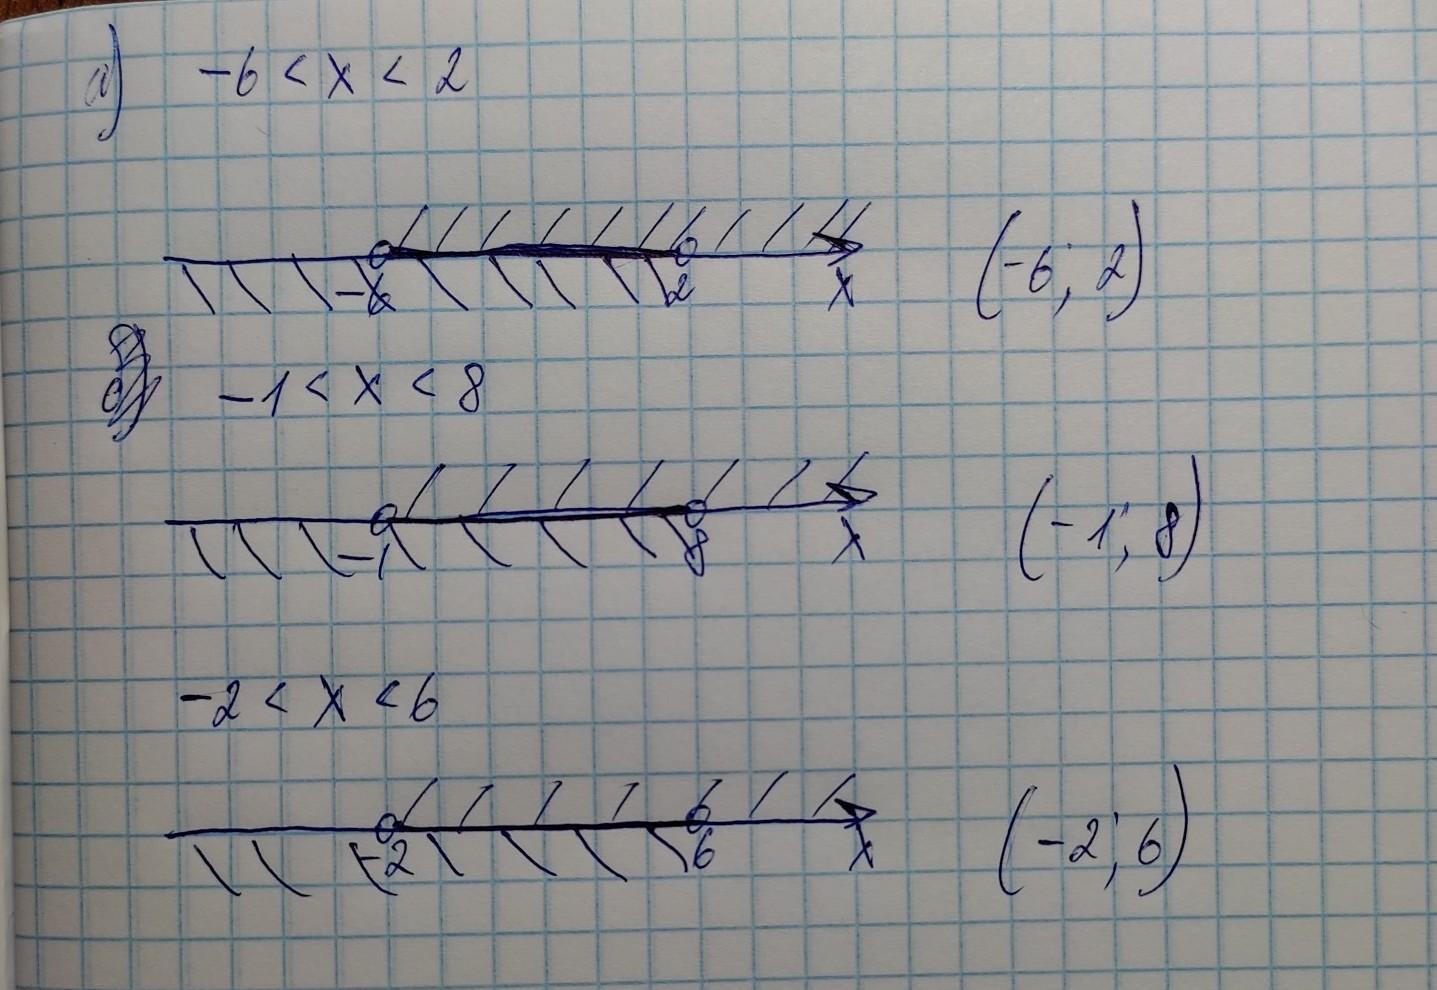 а) -6 < x < 2
-6 2 x (-6; 2)
-1 < x < 8
-1 8 x (-1; 8)
-2 < x < 6
-2 6 x (-2; 6)